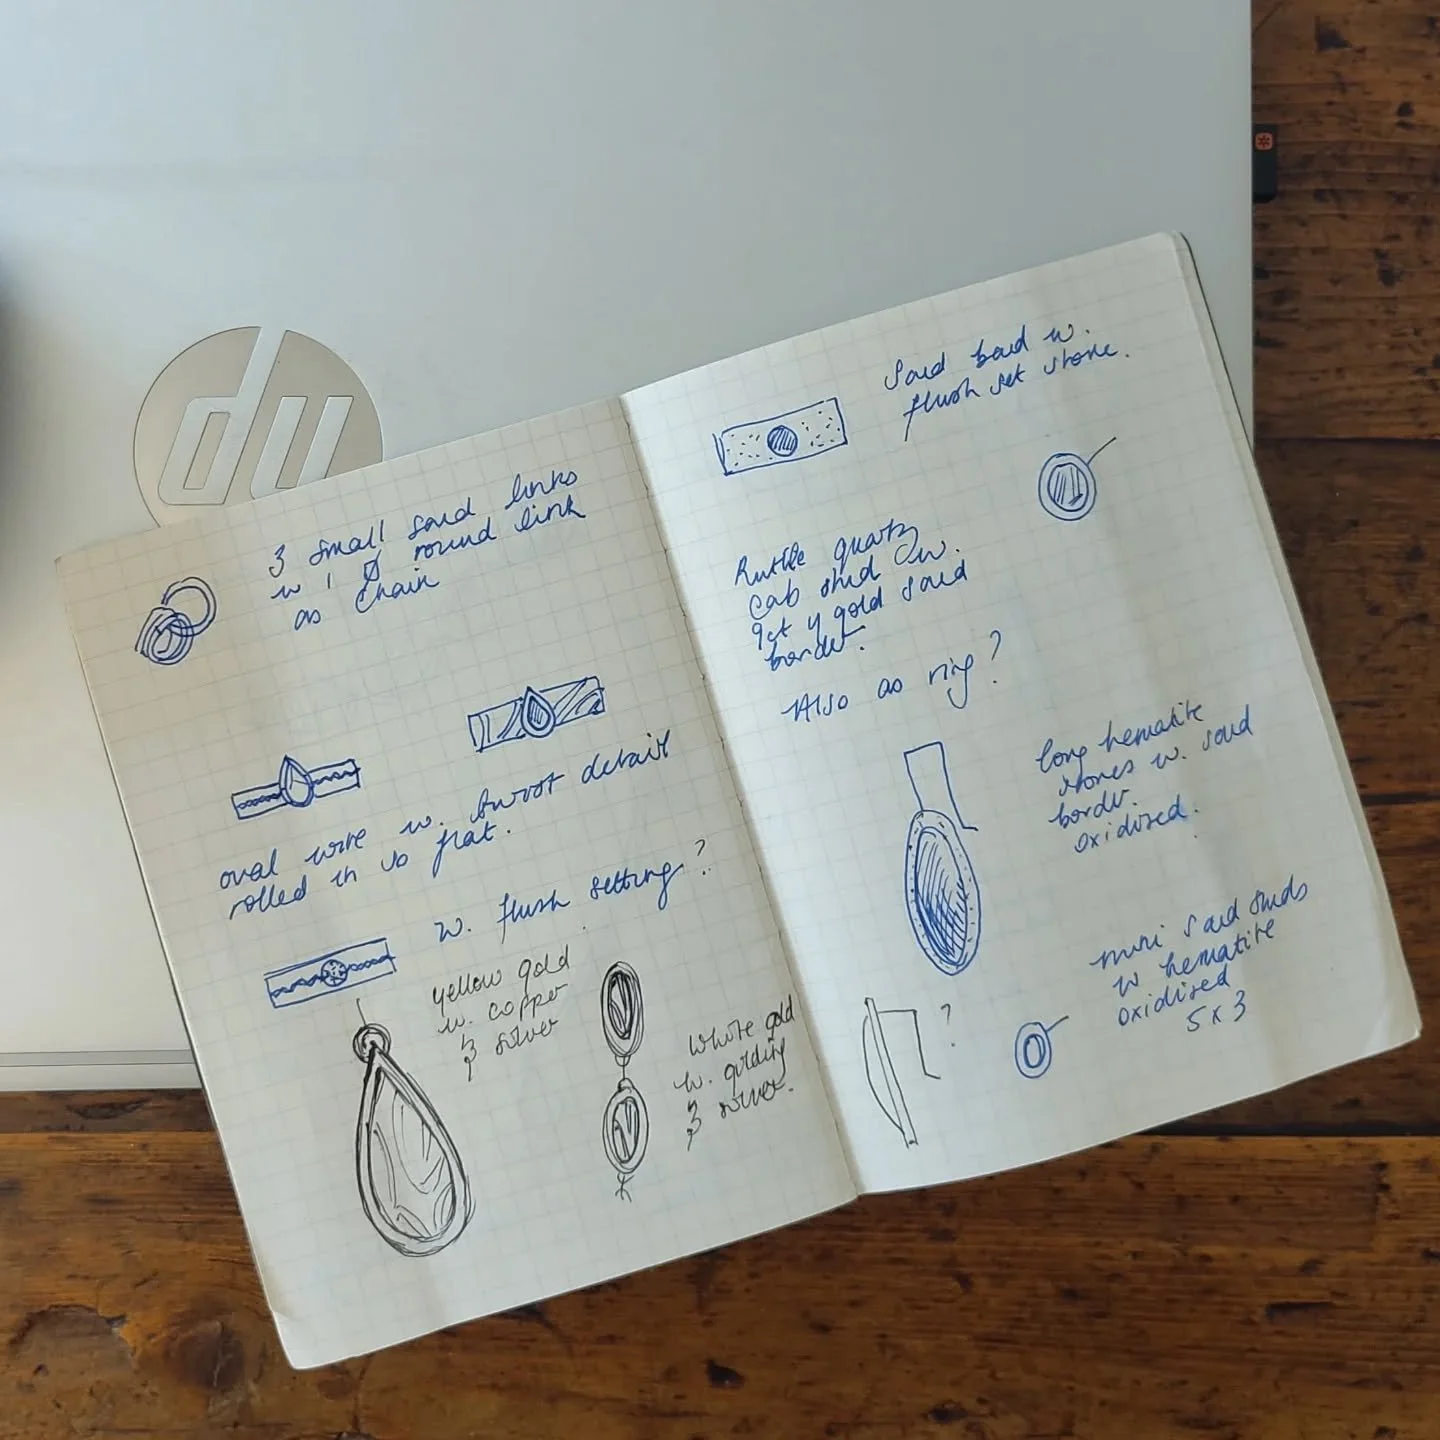 hp
3 small sand links
w 1 round link
as chain
oval wire w. detail
rolled in so flat.
w. flush setting?
yellow gold
w. copper
& silver
White gold
w. gilding
& silver.
Sand band w.
flush set stone.
Rutile quartz
cab stud w.
9ct y gold sand
border.
Also as ring?
long hematite
stones w. sand
border.
oxidised.
mini sand studs
w hematite
oxidised
5 x 3
?